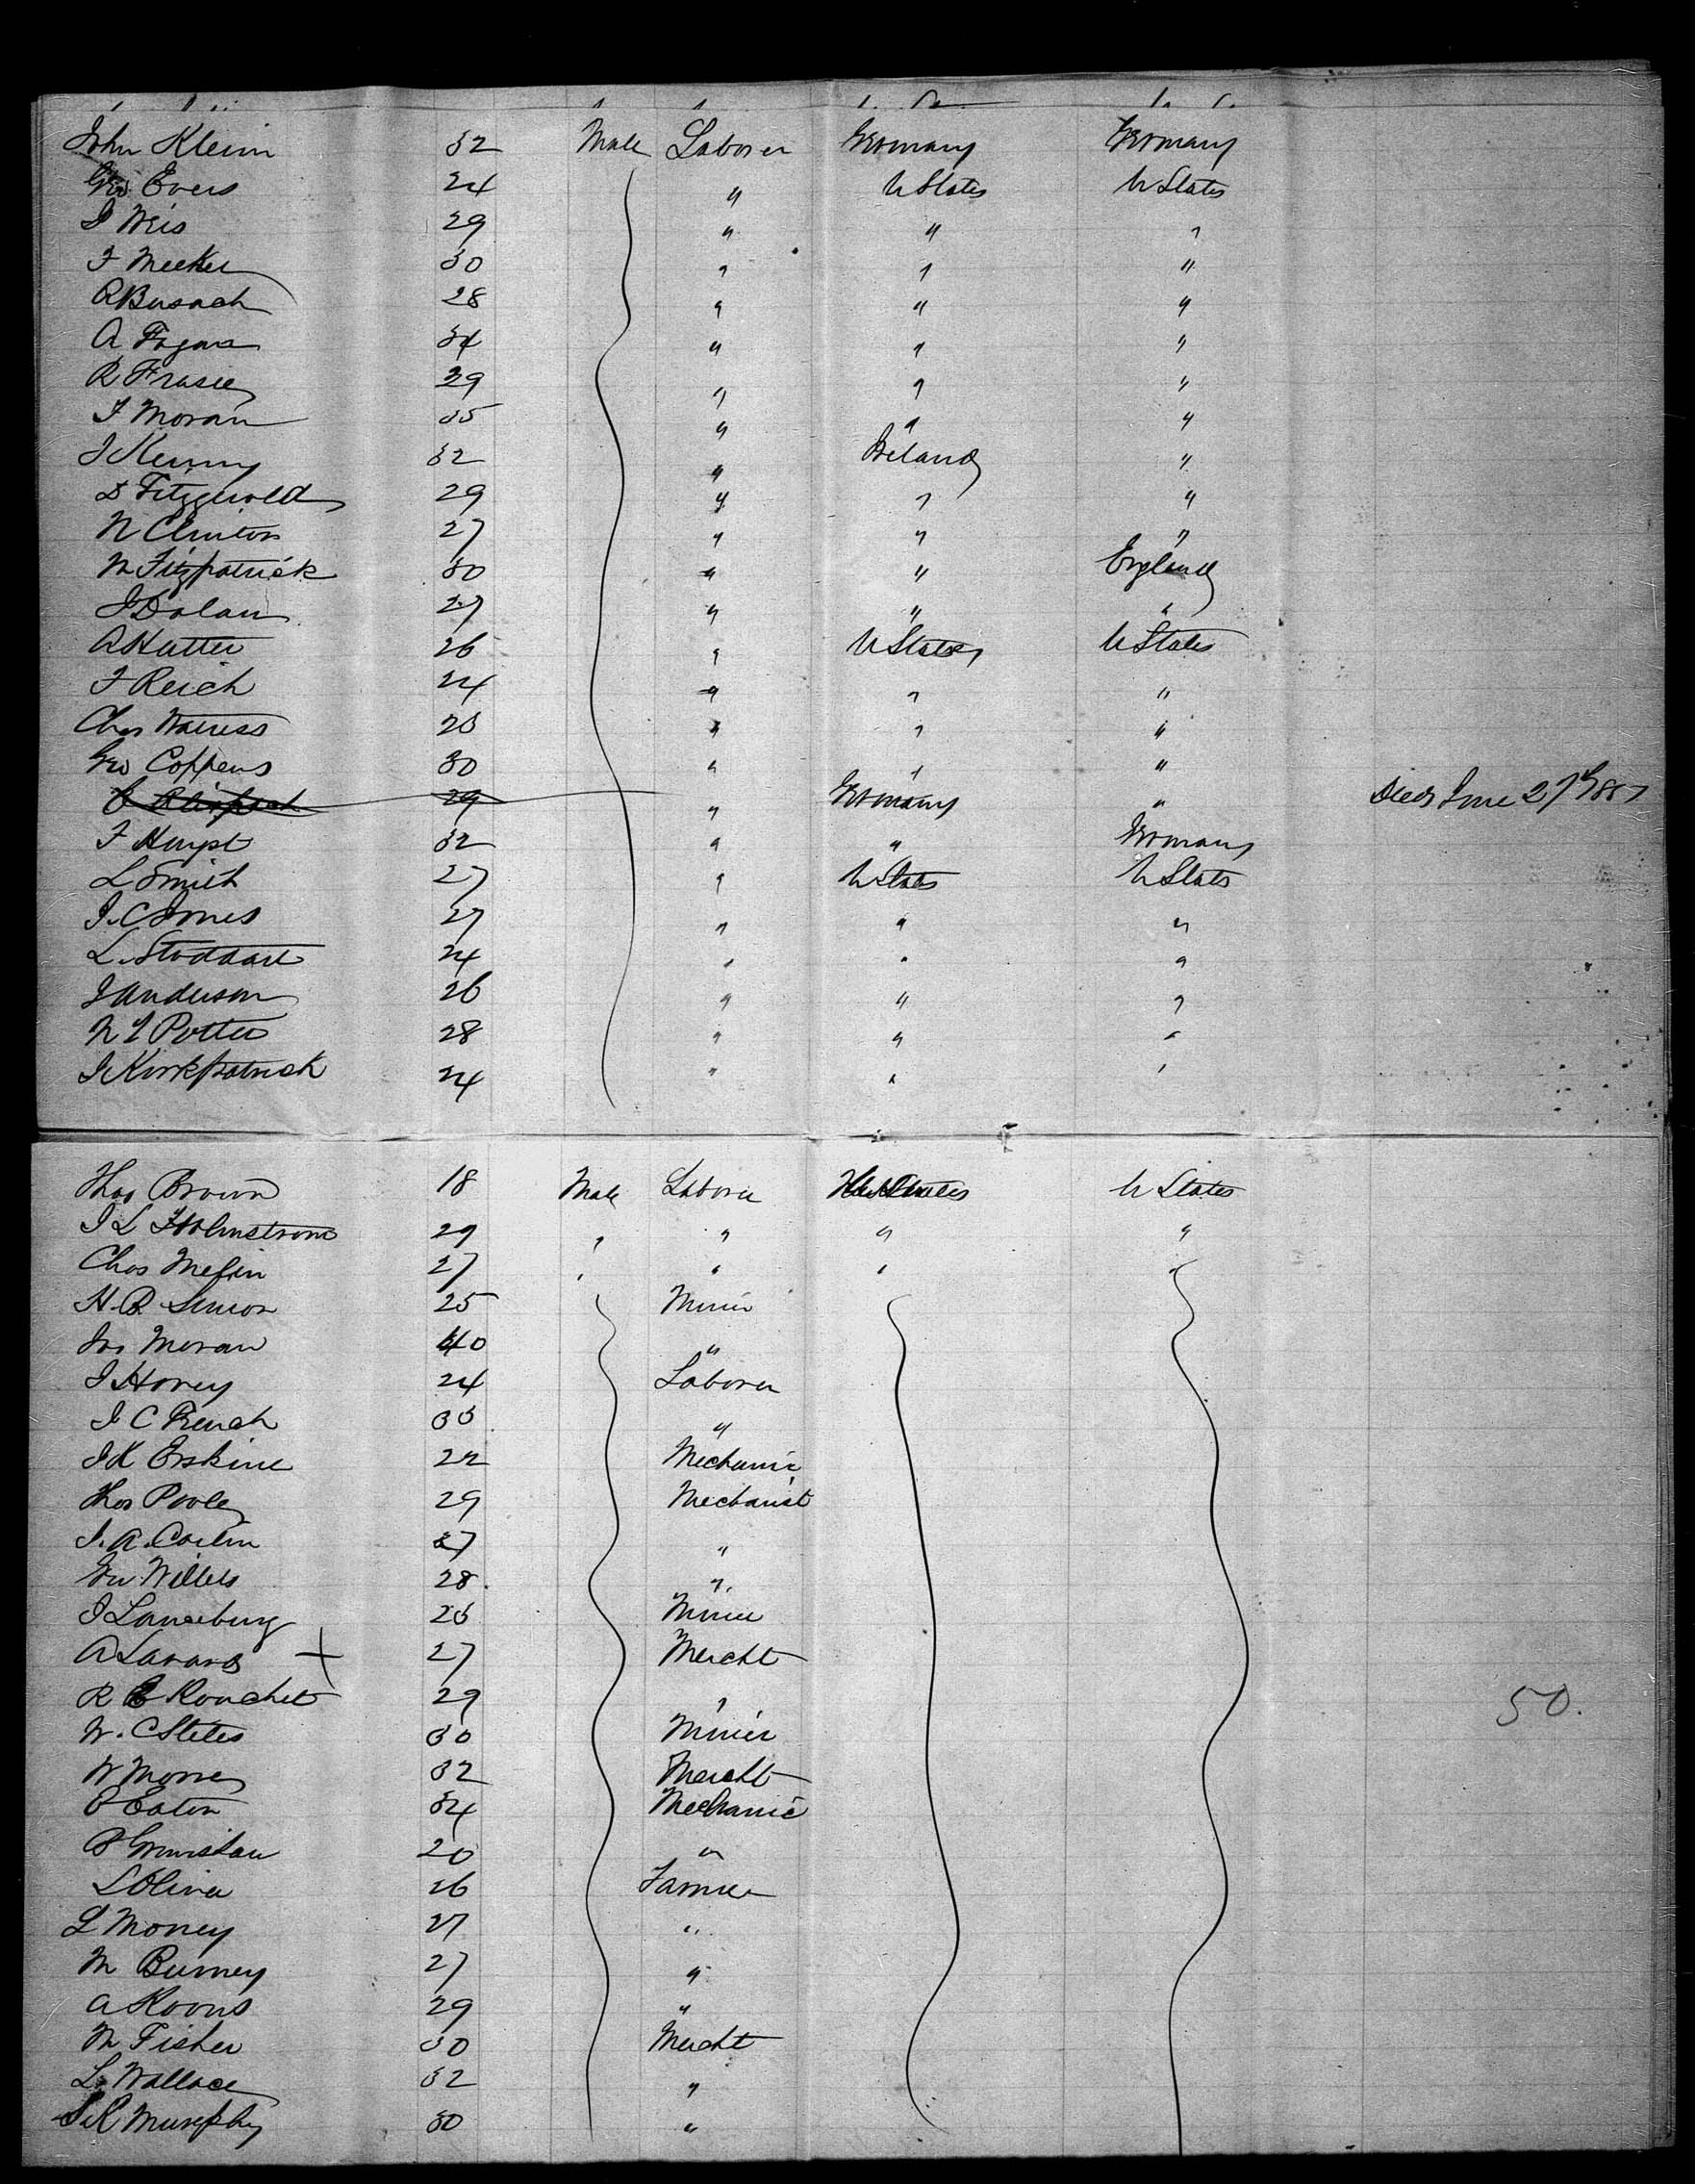 John Klein 32 Male Laborer Germany Germany
Geo Evers 24 " U States U States
J Weis 29 " " "
F Meeker 30 " " "
R Busach 28 " " "
A Fagan 34 " " "
R Frasee 29 " " "
F Moran 35 " " "
J Kenny 32 " Ireland "
D Fitzgerald 29 " " "
N Clinton 27 " " "
M Fitzpatrick 30 " " England
J Dolan 27 " " "
A Hatter 26 " U States U States
F Reich 24 " " "
Chas 23 " " "
Geo Coppens 30 " " "
29 " Germany " Died June 27th
F 32 " " Germany
L Smith 27 " U States U States
J. C. Jones 27 " " "
L. Stoddart 24 " " "
J Anderson 26 " " "
Porter 28 " " "
J Kirkpatrick 24 " " "
Thos Brown 18 Male Laborer U States
J L Holmstrom 29 " " " "
Chas 27 " " " "
H. B. Simon 25 Miner
Jas Moran 40 "
J Hovey 24 Laborer
J C French 33 "
J K Erskine 22 Mechanic
Thos Pooley 29 Mechanist
J. A. Carlin 27 "
Geo Willets 28 "
J Laneburg 23 Miner
A + 27 Mercht
R Rouchet 29 "
W. C Stetes 30 Miner 50.
W 32 Mercht
Eaton 34 Mechanic
20 "
L Oliver 26 Farmer
L Money 27 "
M Burney 27 "
A Koons 29 "
M Fisher 30 Mercht
L. Wallace 32 "
Murphy 30 "